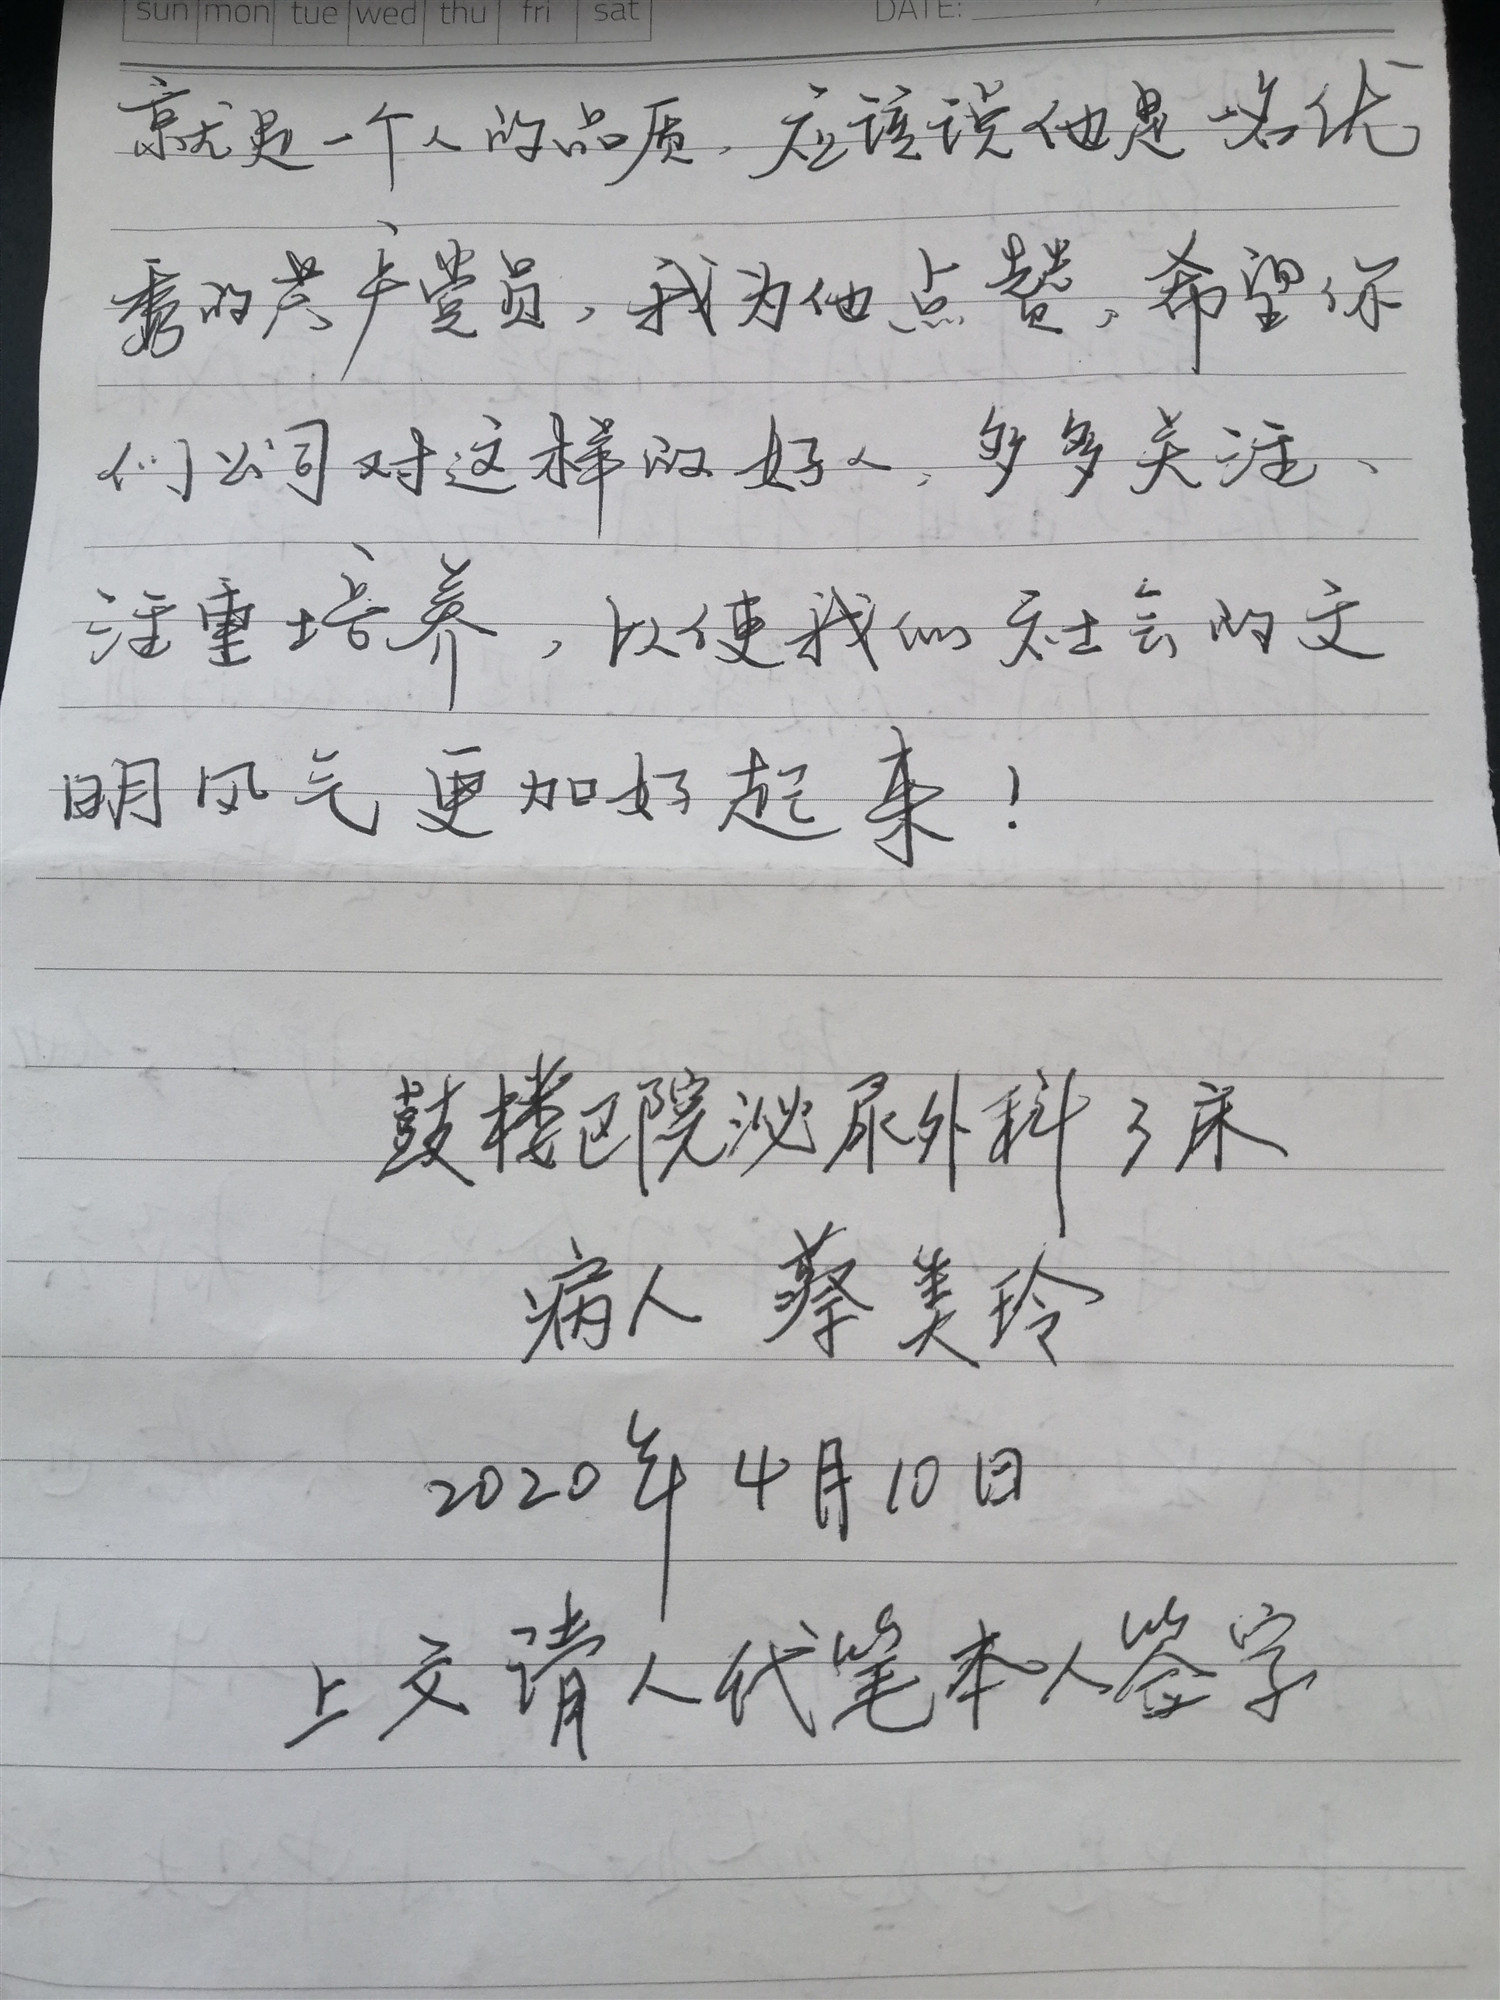 sun mon tue wed thu fri sat DATE:
就是一个人的品质，应该说他是一名优
秀的共产党员，我为他点赞，希望你
们公司对这样的好人，多多关注、
注重培养，以使我们社会的文
明风气更加好起来！
鼓楼医院泌尿外科3床
病人 蔡美玲
2020年4月10日
上文请人代笔本人签字